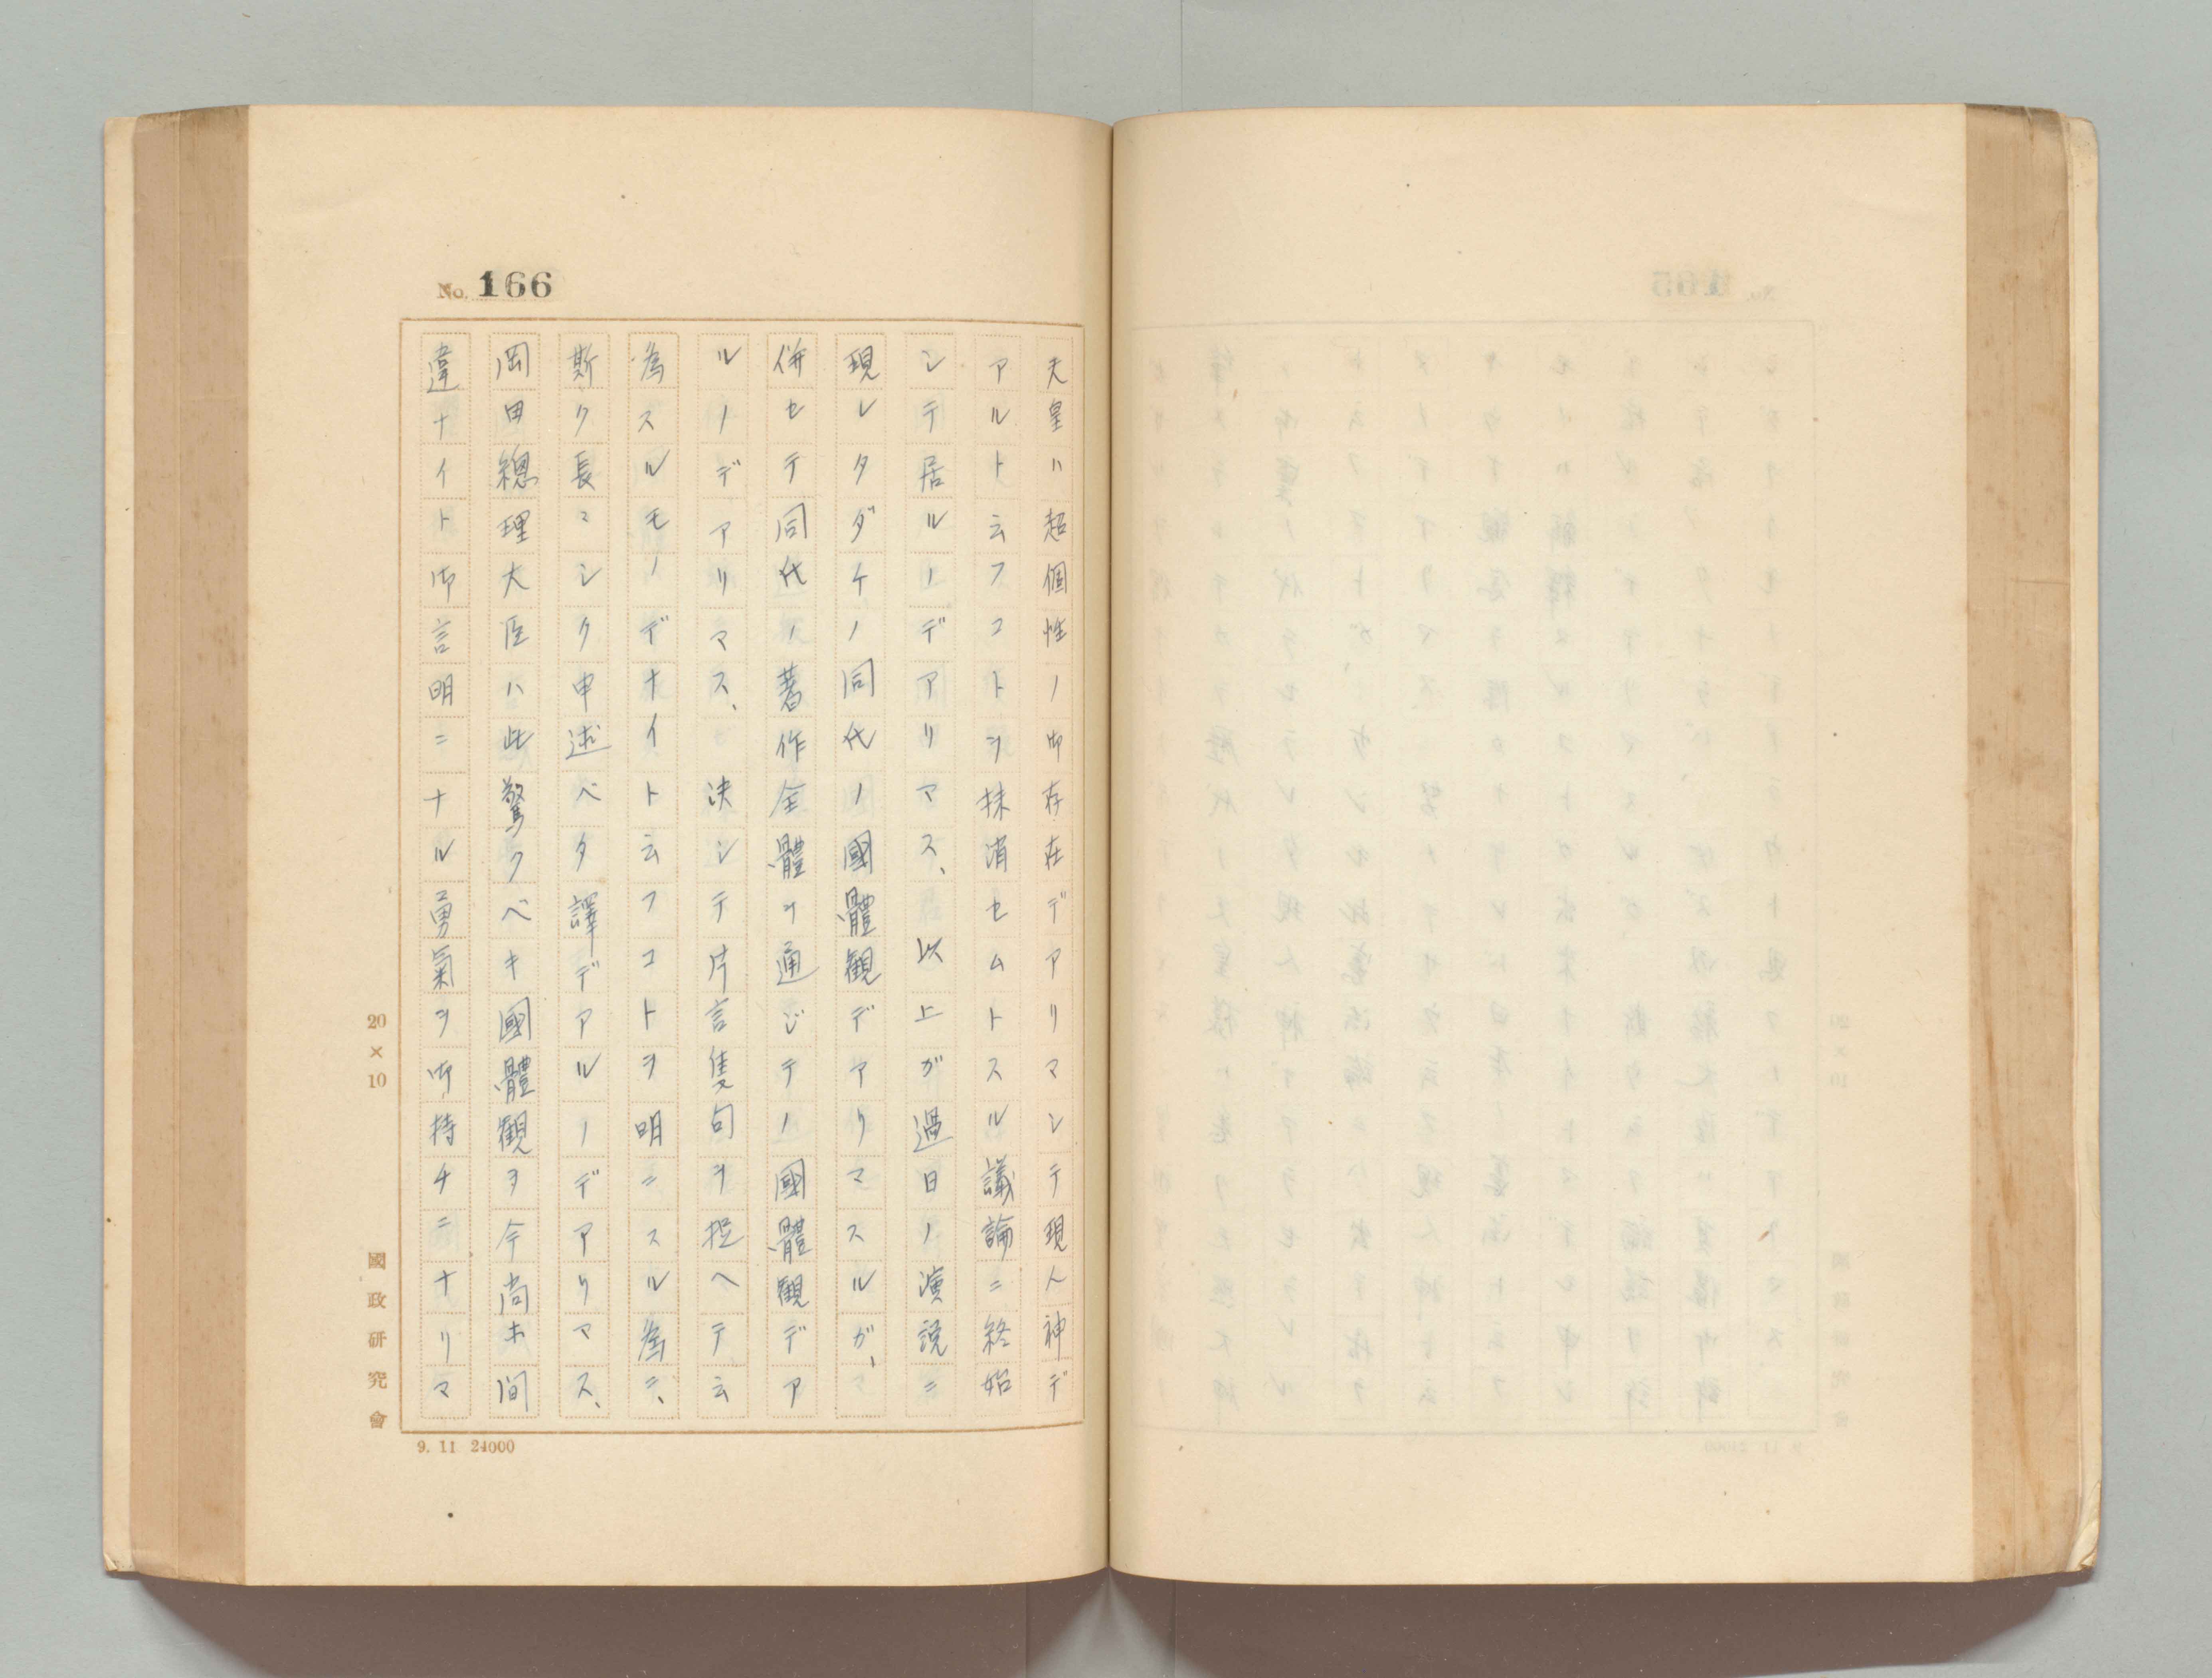 No. 166
天皇ハ超個性ノ御存在デアリマシテ現人神デ
アルト云フコトヲ抹消セムトスル議論ニ終始
シテ居ルノデアリマス、以上ガ過日ノ演説ニ
現レタダケノ同代ノ國體観デアリマスルガ、
併セテ同代ノ著作全體ヲ通ジテノ國體観デア
ルノデアリマス、決シテ片言隻句ヲ捉ヘテ云
為スルモノデナイト云フコトヲ明ニスル為ニ、
斯ク長マシク申述ベタ譯デアルノデアリマス、
岡田總理大臣ハ此驚クベキ國體観ヲ今尚ホ間
違ナイト御言明ニナル勇氣ヲ御持チニナリマ
20×10
國政研究會
9. 11 24000